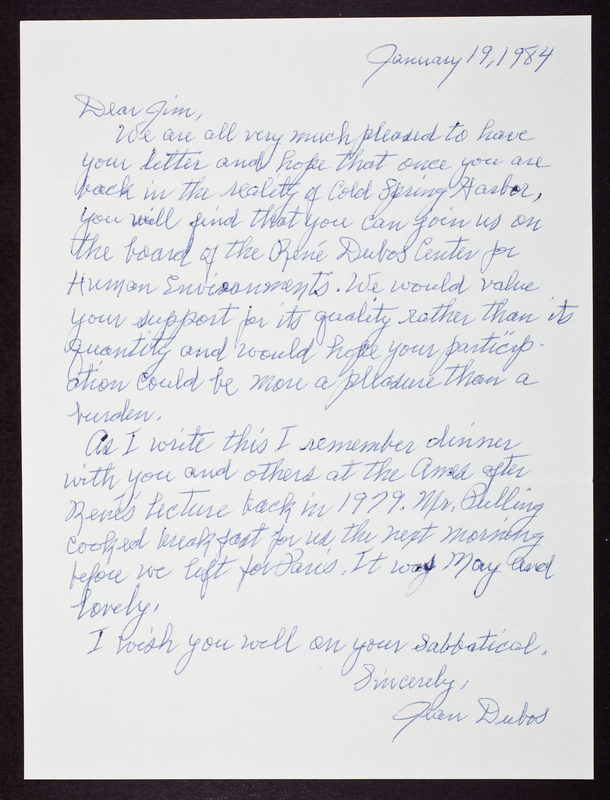 January 19, 1984
Dear Jim,
We are all very much pleased to have
your letter and hope that once you are
back in the reality of Cold Spring Harbor,
you will find that you can join us on
the board of the René Dubos Center for
Human Environments. We would value
your support for its quality rather than its
quantity and would hope your particip-
ation could be more a pleasure than a
burden.
As I write this I remember dinner
with you and others at the Ames after
René's lecture back in 1979. Mr. Pulling
cooked breakfast for us the next morning
before we left for Paris. It was May and
lovely.
I wish you well on your sabbatical.
Sincerely,
Jean Dubos